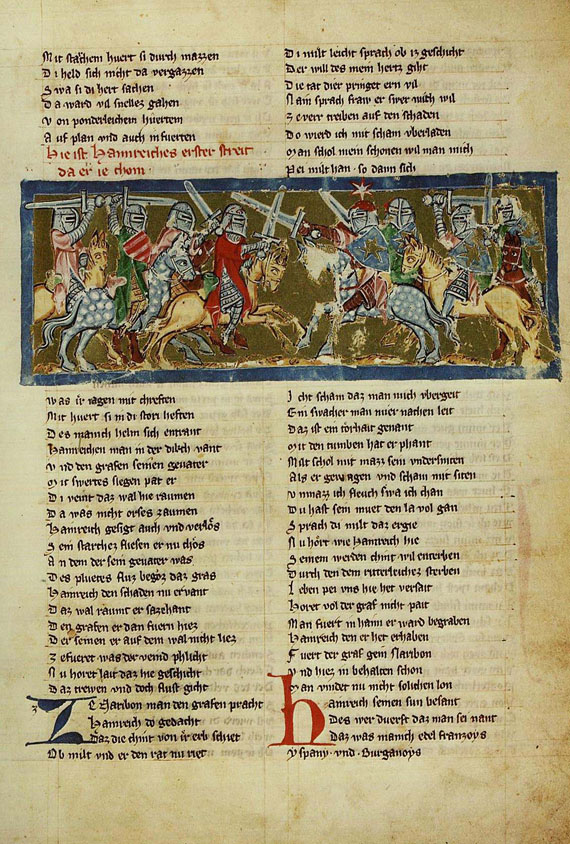 Mit starchem huert si durch mazzen
Di held sich nicht da vergazzen
Swa si di hert sachen
Da ward vil snellez gahen
Von ponderleichem hürtem
Auf plan vnd auch in fuerten
Hie ist Hamreiches erster streit
da er ie chom
Was ir iagen mit chreften
Mit huert si in di stort heften
Des manich helm sich entrant
Hamreichen man in der dikch vant
Vnd den grafen seinen geuater
Mit swertes slegen pat er
Di veint daz wal hie raumen
Da was nicht orses zaumen
Hamreich gesigt auch vnd verlos
Sein starchez fliesen er nu chos
An dem der sein geuater was
Des pluetes fluz begoz daz gras
Hamreich den schaden nu ervant
Daz wal raumt er sazehant
Den grafen er dan fuern hiez
Der seinen er auf dem wal nicht liez
Ze fueret was der veind phlicht
Nu horet laut daz hie geschicht
Daz trewen vnd doch flust gicht
Ze Naribon man den grafen pracht
Hamreich do gedacht
Daz die chint von ir erb schiet
Ob milt vnd er den rat nu riet
Di milt leicht sprach ob iz geschicht
Der will des mein hertz giht
Die tat dier pringet ern vil
Nain sprach fraw er swer mich wil
Ze verr treiben auf den schaden
Do wierd ich mit scham vberladen
Man schol mein schonen wil man mich
Pei milt han · so dann sich
Icht scham daz man mich vbergeit
Ein swacher man mier nachen leit
Daz ist ein torhait genant
Mit den tumben hat er phant
Milt schol mit mazz sein vndersniten
Als er gewegen vnd scham mit siten
Vnmazz ich fleuch swa ich chan
Du hast sein muet den la vol gan
Sprach di milt daz ergie
Nu hört wie Hamreich hie
Seinem werden chint wil enterben
Durch den dem ritterleichez sterben
Leben pei vns hie het versait
Horet vol der graf nicht pait
Man fuert in haim er ward begraben
Hamreich den er het erhaben
Fuert der graf gein Naribon
Vnd hiez in behalten schon
Man vindet nu nicht solichen lon
Hamreich seinen sun besant
Des wer duerft daz man sei nant
Daz was manich edel franzoys
Yspany · vnd · Burganoys